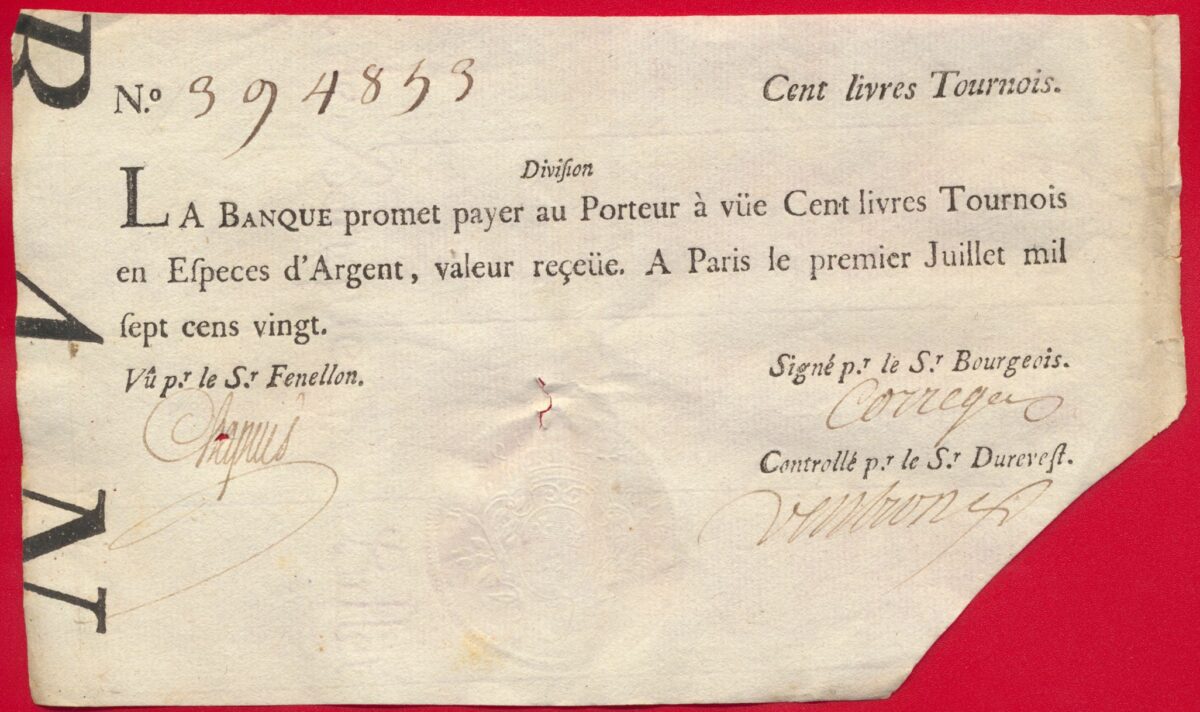 N.º 394853 Cent livres Tournois.
Diviſion
LA BANQUE promet payer au Porteur à vüe Cent livres Tournois
en Eſpeces d'Argent, valeur reçeüe. A Paris le premier Juillet mil
ſept cens vingt.
Vû p.r le S.r Fenellon. Signé p.r le S.r Bourgeois.
Controllé p.r le S.r Dureveſt.
BAN